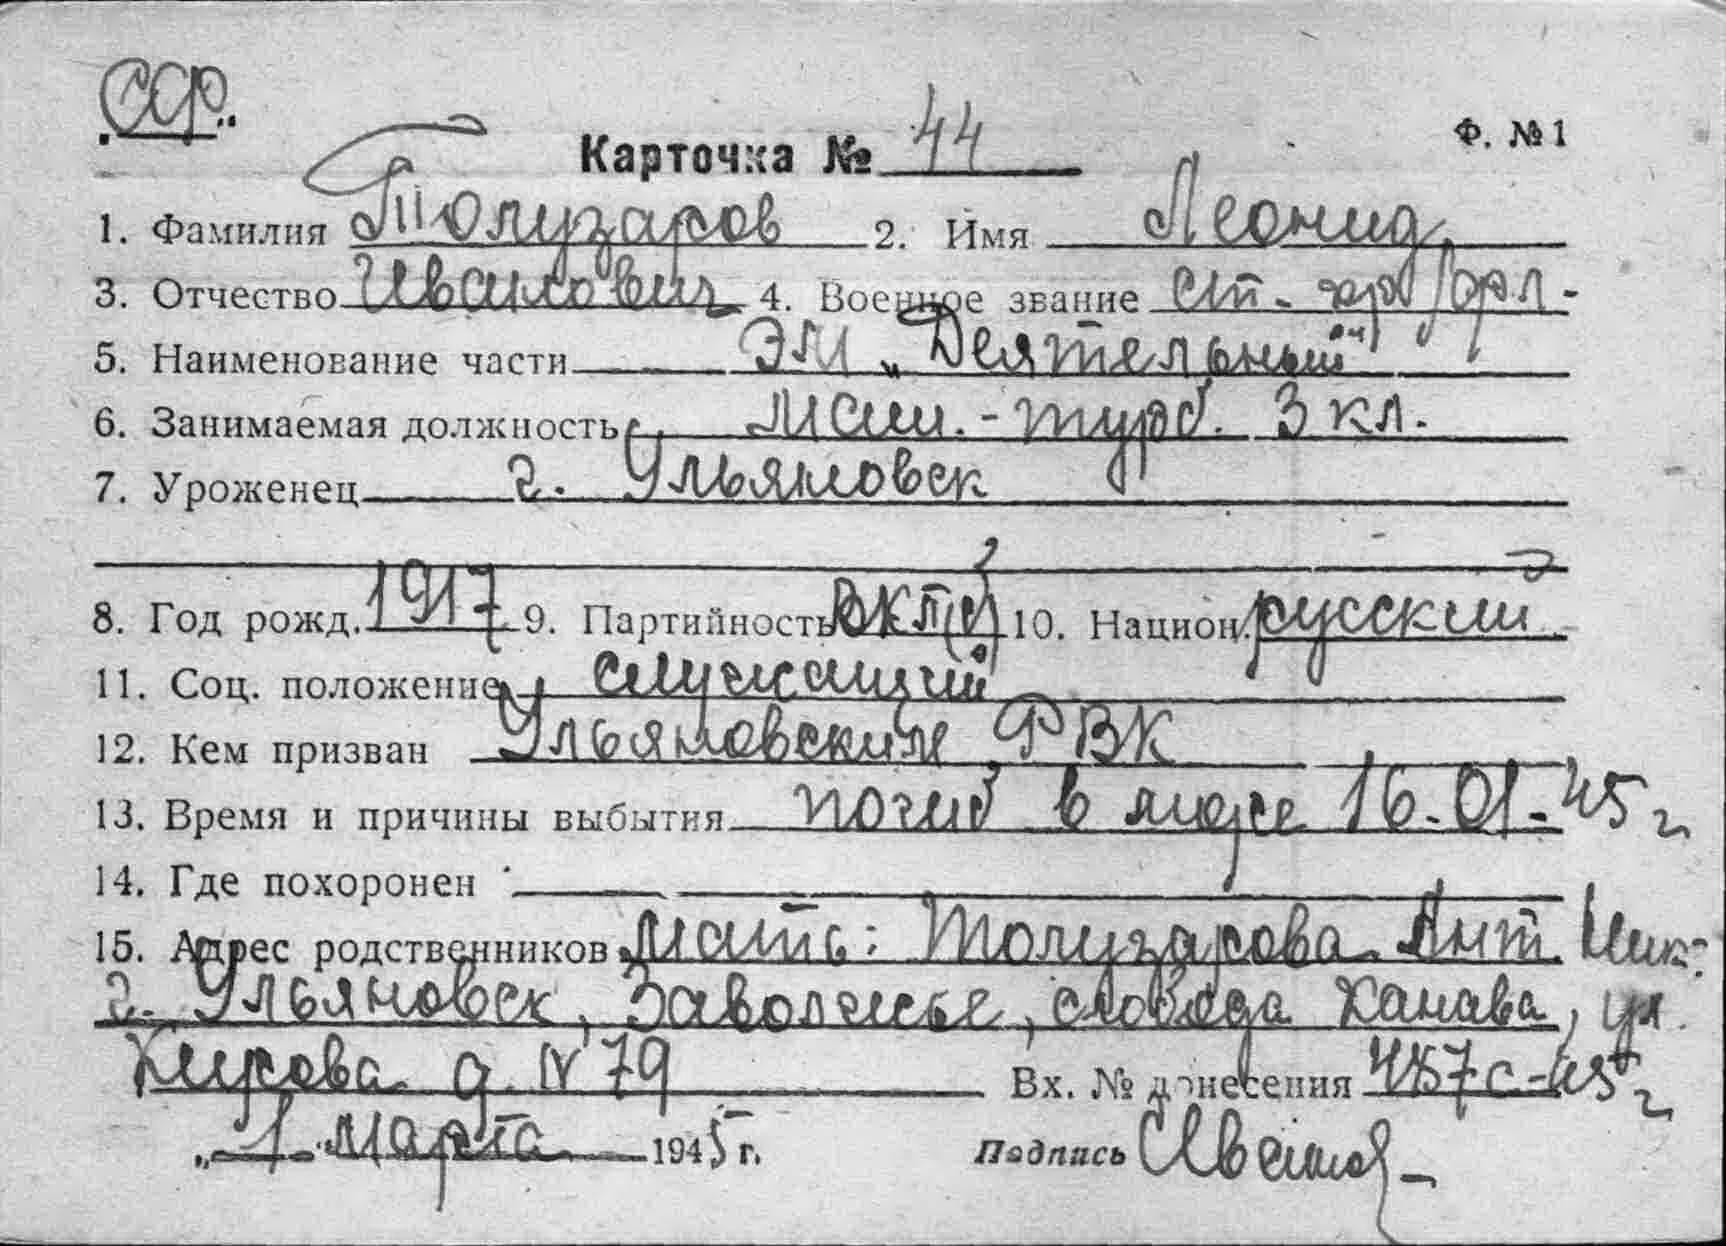 ССФ
Карточка № 44
Ф. № 1
1. Фамилия Толузаров 2. Имя Леонид
3. Отчество Иванович 4. Военное звание ст.
5. Наименование части ЭМ „Деятельный"
6. Занимаемая должность маш.-турб. 3 кл.
7. Уроженец г. Ульяновск
8. Год рожд. 1917 9. Партийность ВКП(б) 10. Национ. русский
11. Соц. положение служащий
12. Кем призван Ульяновским РВК
13. Время и причины выбытия погиб в море 16.01.45 г
14. Где похоронен —
15. Адрес родственников мать: Толузарова Ант. Ник.
г. Ульяновск, Заволжье, слобода Канава, ул.
Кирова д. N 79 Вх. № донесения 487с-45 г
„1" марта 1945 г. Подпись